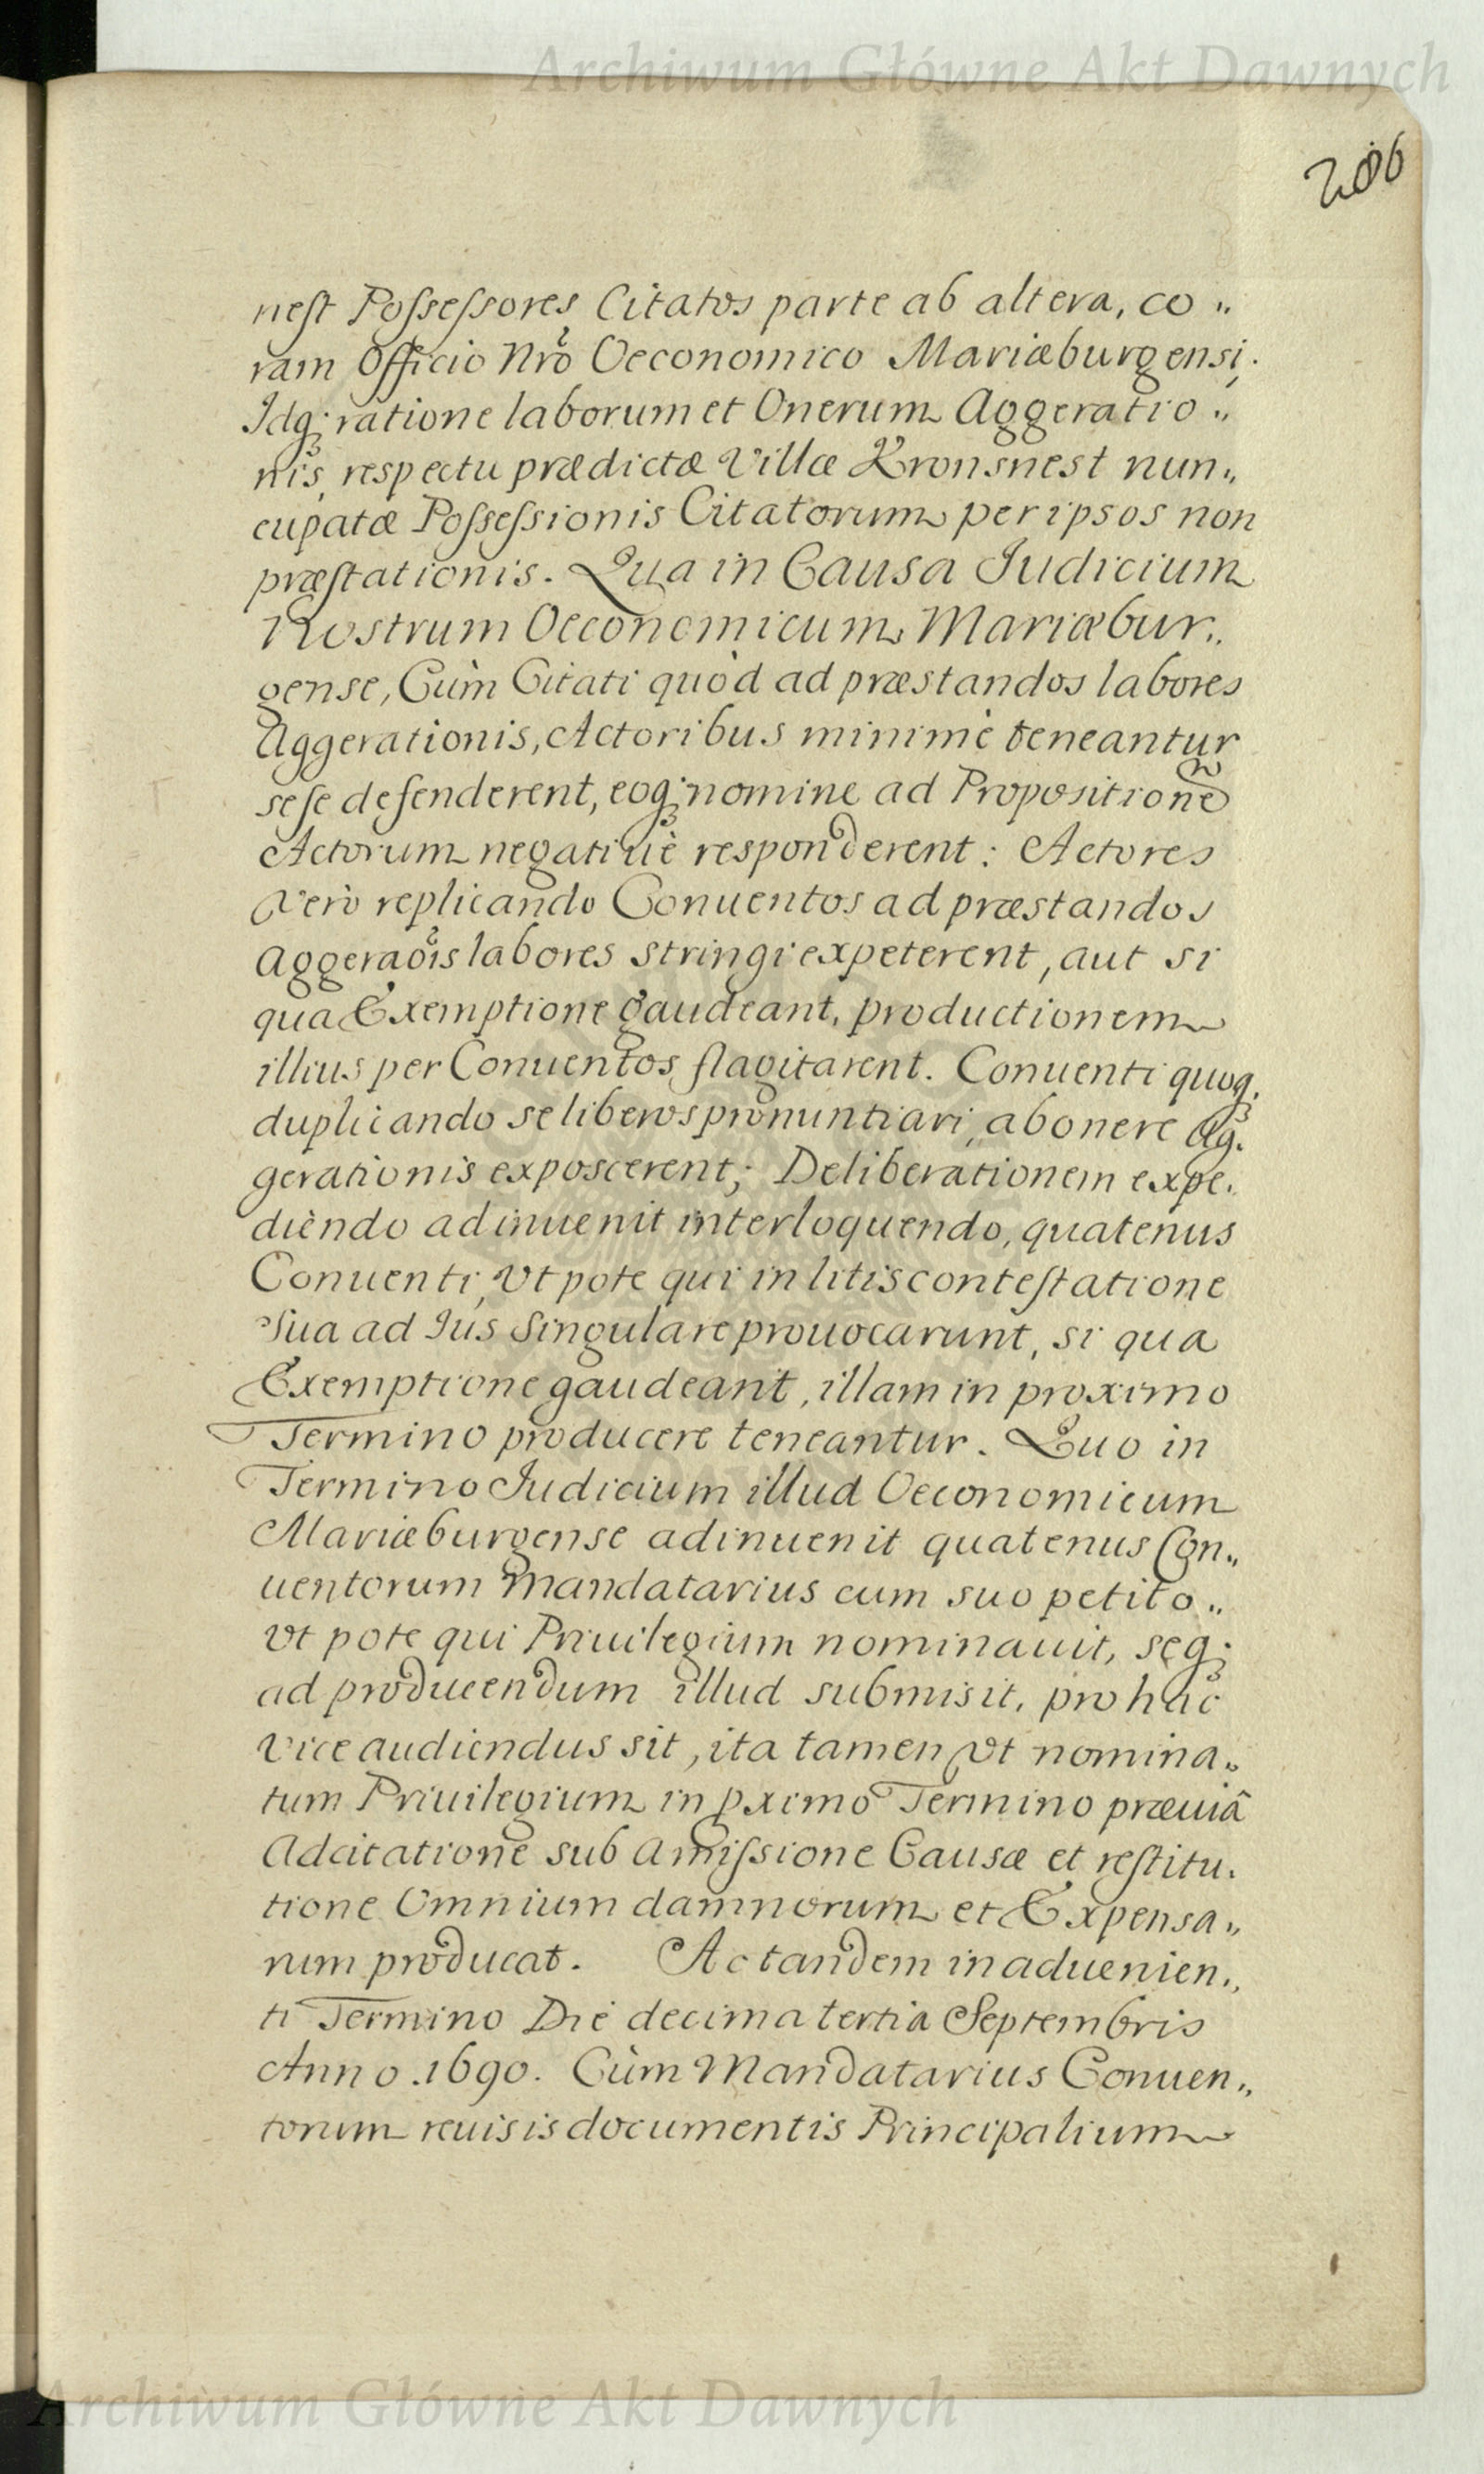 Archiwum Główne Akt Dawnych
206
nest Possessores Citatos parte ab altera, co„
ram Officio Nrô Oeconomico Mariæburgensi.
Idq; ratione laborum et Onerum Aggeratio„
nis, respectu prædictæ Villæ Kronsnest nun„
cupatæ Possessionis Citatorum per ipsos non
præstationis. Qua in Causa Judicium
Nostrum Oeconomicum Mariæbur„
gense, Cùm Citati quòd ad præstandos labores
Aggerationis, Actoribus minimè teneantur
sese defenderent, eoq; nomine ad Propositionē
Actorum negatiuè responderent: Actores
Verò replicando Conuentos ad præstandos
Aggeraõis labores stringi expeterent, aut si
qua Exemptione gaudeant, productionem
illius per Conuentos flagitarent. Conuenti quoq;
duplicando se liberos pronuntiari, ab onere Ag.
gerationis exposcerent; Deliberationem expe.
diendo adinuenit interloquendo, quatenus
Conuenti, Vt pote qui in litis contestatione
Sua ad Jus Singulare prouocarunt, si qua
Exemptione gaudeant, illam in proximo
Termino producere teneantur. Quo in
Termino Judicium illud Oeconomicum
Mariæburgense adinuenit quatenus Con„
uentorum Mandatarius cum suo petito„
Vt pote qui Priuilegium nominauit, seq;
ad producendum illud submisit, pro hac
Vice audiendus sit, ita tamen Vt nomina„
tum Priuilegium in pximo Termino præuiâ
Adcitatione sub amissione Causæ et restitu.
tione Omnium damnorum et Expensa„
rum producat. Ac tandem in aduenien„
ti Termino Die decima tertia Septembris
Anno .1690. Cùm Mandatarius Conuen„
torum reuisis documentis Principalium
Archiwum Główne Akt Dawnych